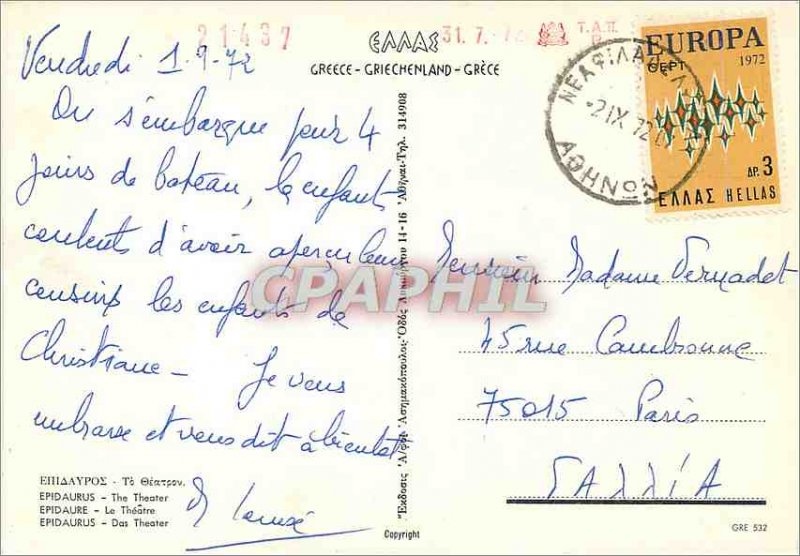 21437
31.7.72
Τ.Α.Π.
ΕΛΛΑΣ
GREECE - GRIECHENLAND - GRÈCE
EUROPA
CEPT 1972
ΔΡ. 3
ΕΛΛΑΣ HELLAS
ΝΕΑ ΦΙΛΑΔΕΛ
-2 IX 72
ΑΘΗΝΩΝ
Vendredi 1-9-72
On s'embarque pour 4
jours de bateau, les enfants
contents d'avoir aperçu leurs
cousins les enfants de
Christiane - Je vous
embrasse et vous dit à bientot
Monsieur Madame Vernadet
45 rue Cambronne
75015 Paris
ΓΑΛΛίΑ
CPAPHIL
Ἔκδοσις Ἀφοι Ἀσημακόπουλοι-Ὁδὸς 14-16 Ἀθῆναι-Τηλ. 314908
ΕΠΙΔΑΥΡΟΣ - Τὸ Θέατρον.
EPIDAURUS - The Theater
EPIDAURE - Le Théâtre
EPIDAURUS - Das Theater
Copyright
GRE 532